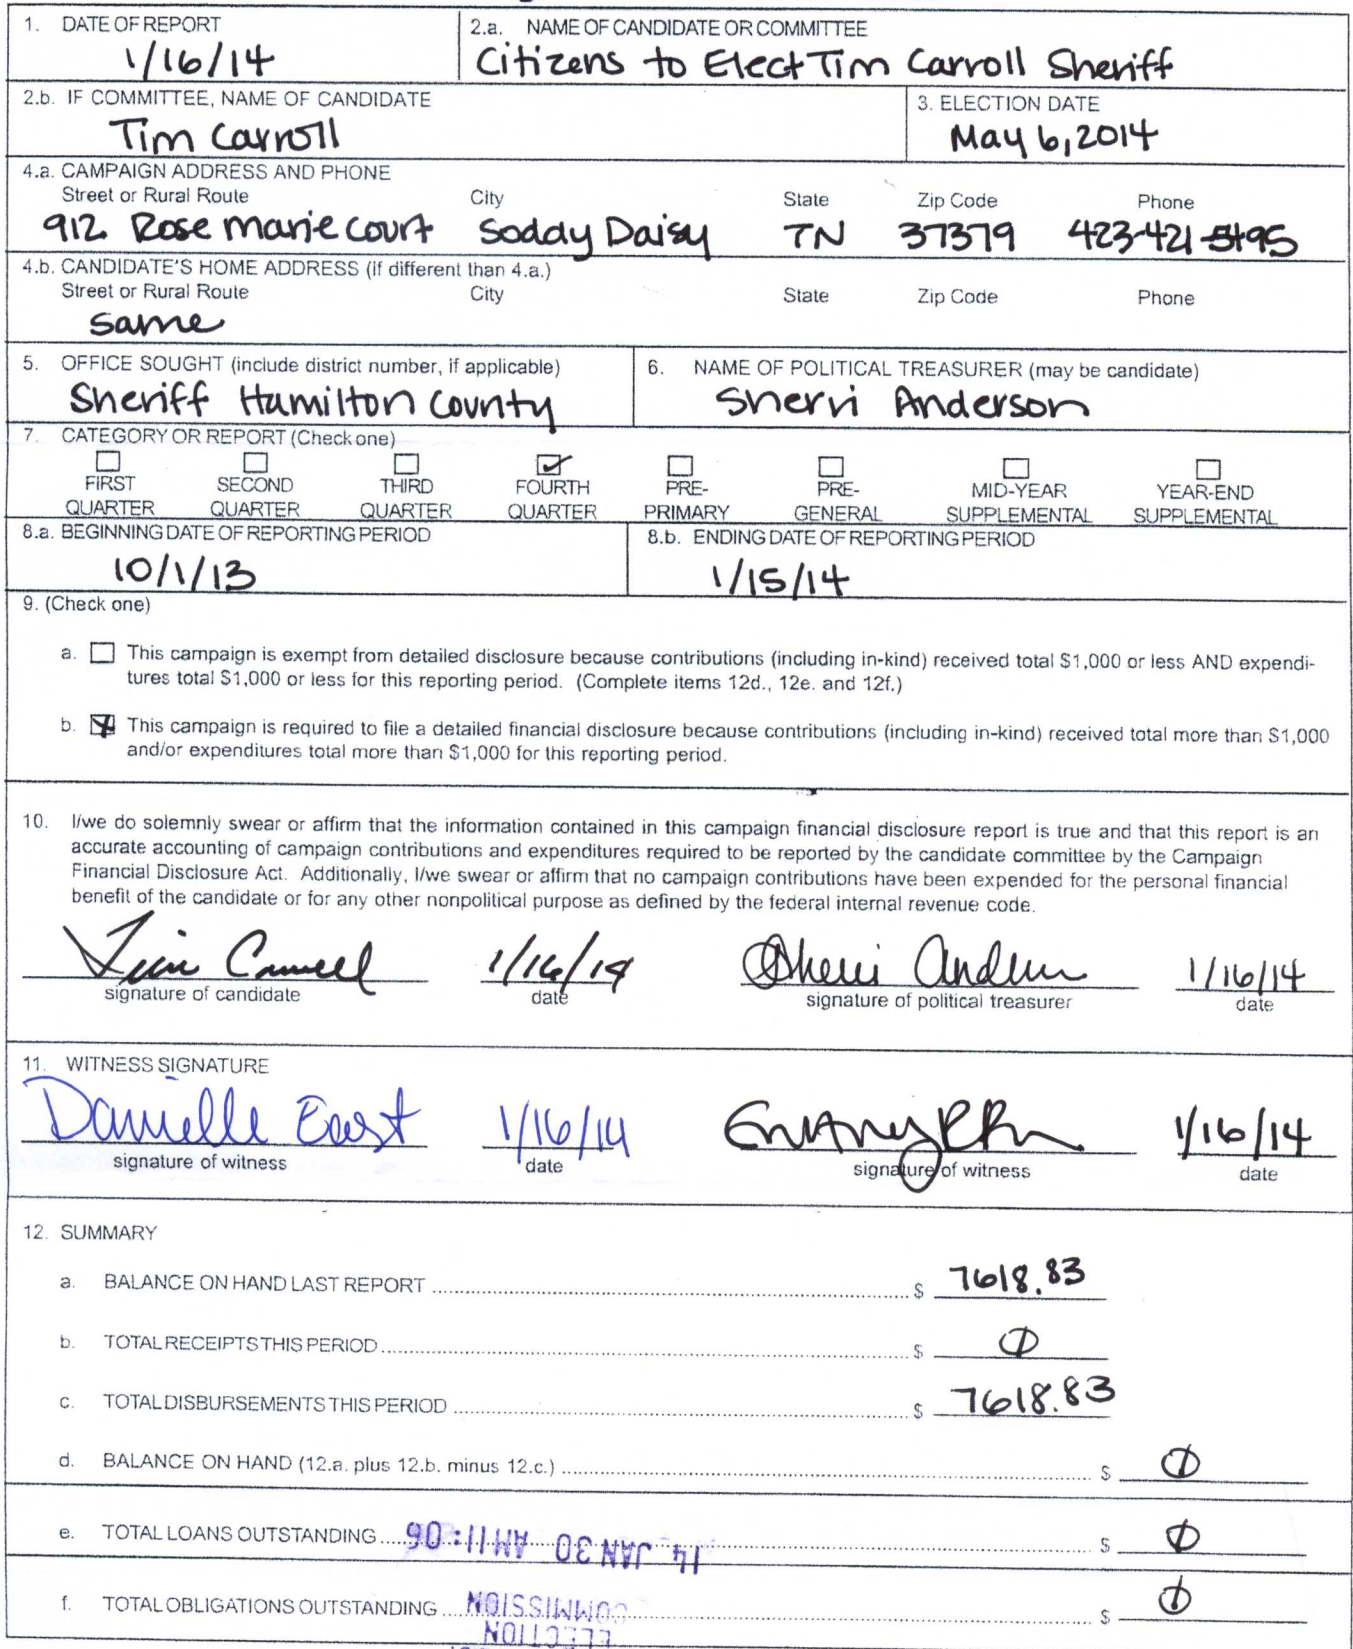 1. DATE OF REPORT
1/16/14
2.a. NAME OF CANDIDATE OR COMMITTEE
Citizens to Elect Tim Carroll Sheriff
2.b. IF COMMITTEE, NAME OF CANDIDATE
Tim Carroll
3. ELECTION DATE
May 6, 2014
4.a. CAMPAIGN ADDRESS AND PHONE
Street or Rural Route City State Zip Code Phone
912 Rose Marie Court Soddy Daisy TN 37379 423-421-5495
4.b. CANDIDATE'S HOME ADDRESS (if different than 4.a.)
Street or Rural Route City State Zip Code Phone
Same
5. OFFICE SOUGHT (include district number, if applicable)
Sheriff Hamilton County
6. NAME OF POLITICAL TREASURER (may be candidate)
Sherri Anderson
7. CATEGORY OR REPORT (Check one)
FIRST QUARTER
SECOND QUARTER
THIRD QUARTER
FOURTH QUARTER
PRE-PRIMARY
PRE-GENERAL
MID-YEAR SUPPLEMENTAL
YEAR-END SUPPLEMENTAL
8.a. BEGINNING DATE OF REPORTING PERIOD
10/1/13
8.b. ENDING DATE OF REPORTING PERIOD
1/15/14
9. (Check one)
a. This campaign is exempt from detailed disclosure because contributions (including in-kind) received total $1,000 or less AND expendi-
tures total $1,000 or less for this reporting period. (Complete items 12d., 12e. and 12f.)
b. This campaign is required to file a detailed financial disclosure because contributions (including in-kind) received total more than $1,000
and/or expenditures total more than $1,000 for this reporting period.
10. I/we do solemnly swear or affirm that the information contained in this campaign financial disclosure report is true and that this report is an
accurate accounting of campaign contributions and expenditures required to be reported by the candidate committee by the Campaign
Financial Disclosure Act. Additionally, I/we swear or affirm that no campaign contributions have been expended for the personal financial
benefit of the candidate or for any other nonpolitical purpose as defined by the federal internal revenue code.
Tim Carroll 1/16/14 Sherri Anderson 1/16/14
signature of candidate date signature of political treasurer date
11. WITNESS SIGNATURE
Danielle East 1/16/14 1/16/14
signature of witness date signature of witness date
12. SUMMARY
a. BALANCE ON HAND LAST REPORT $ 7618.83
b. TOTAL RECEIPTS THIS PERIOD $ 0
c. TOTAL DISBURSEMENTS THIS PERIOD $ 7618.83
d. BALANCE ON HAND (12.a. plus 12.b. minus 12.c.) $ 0
e. TOTAL LOANS OUTSTANDING $ 0
14 JAN 30 AM 11:06
f. TOTAL OBLIGATIONS OUTSTANDING $ 0
COMMISSION
ELECTION